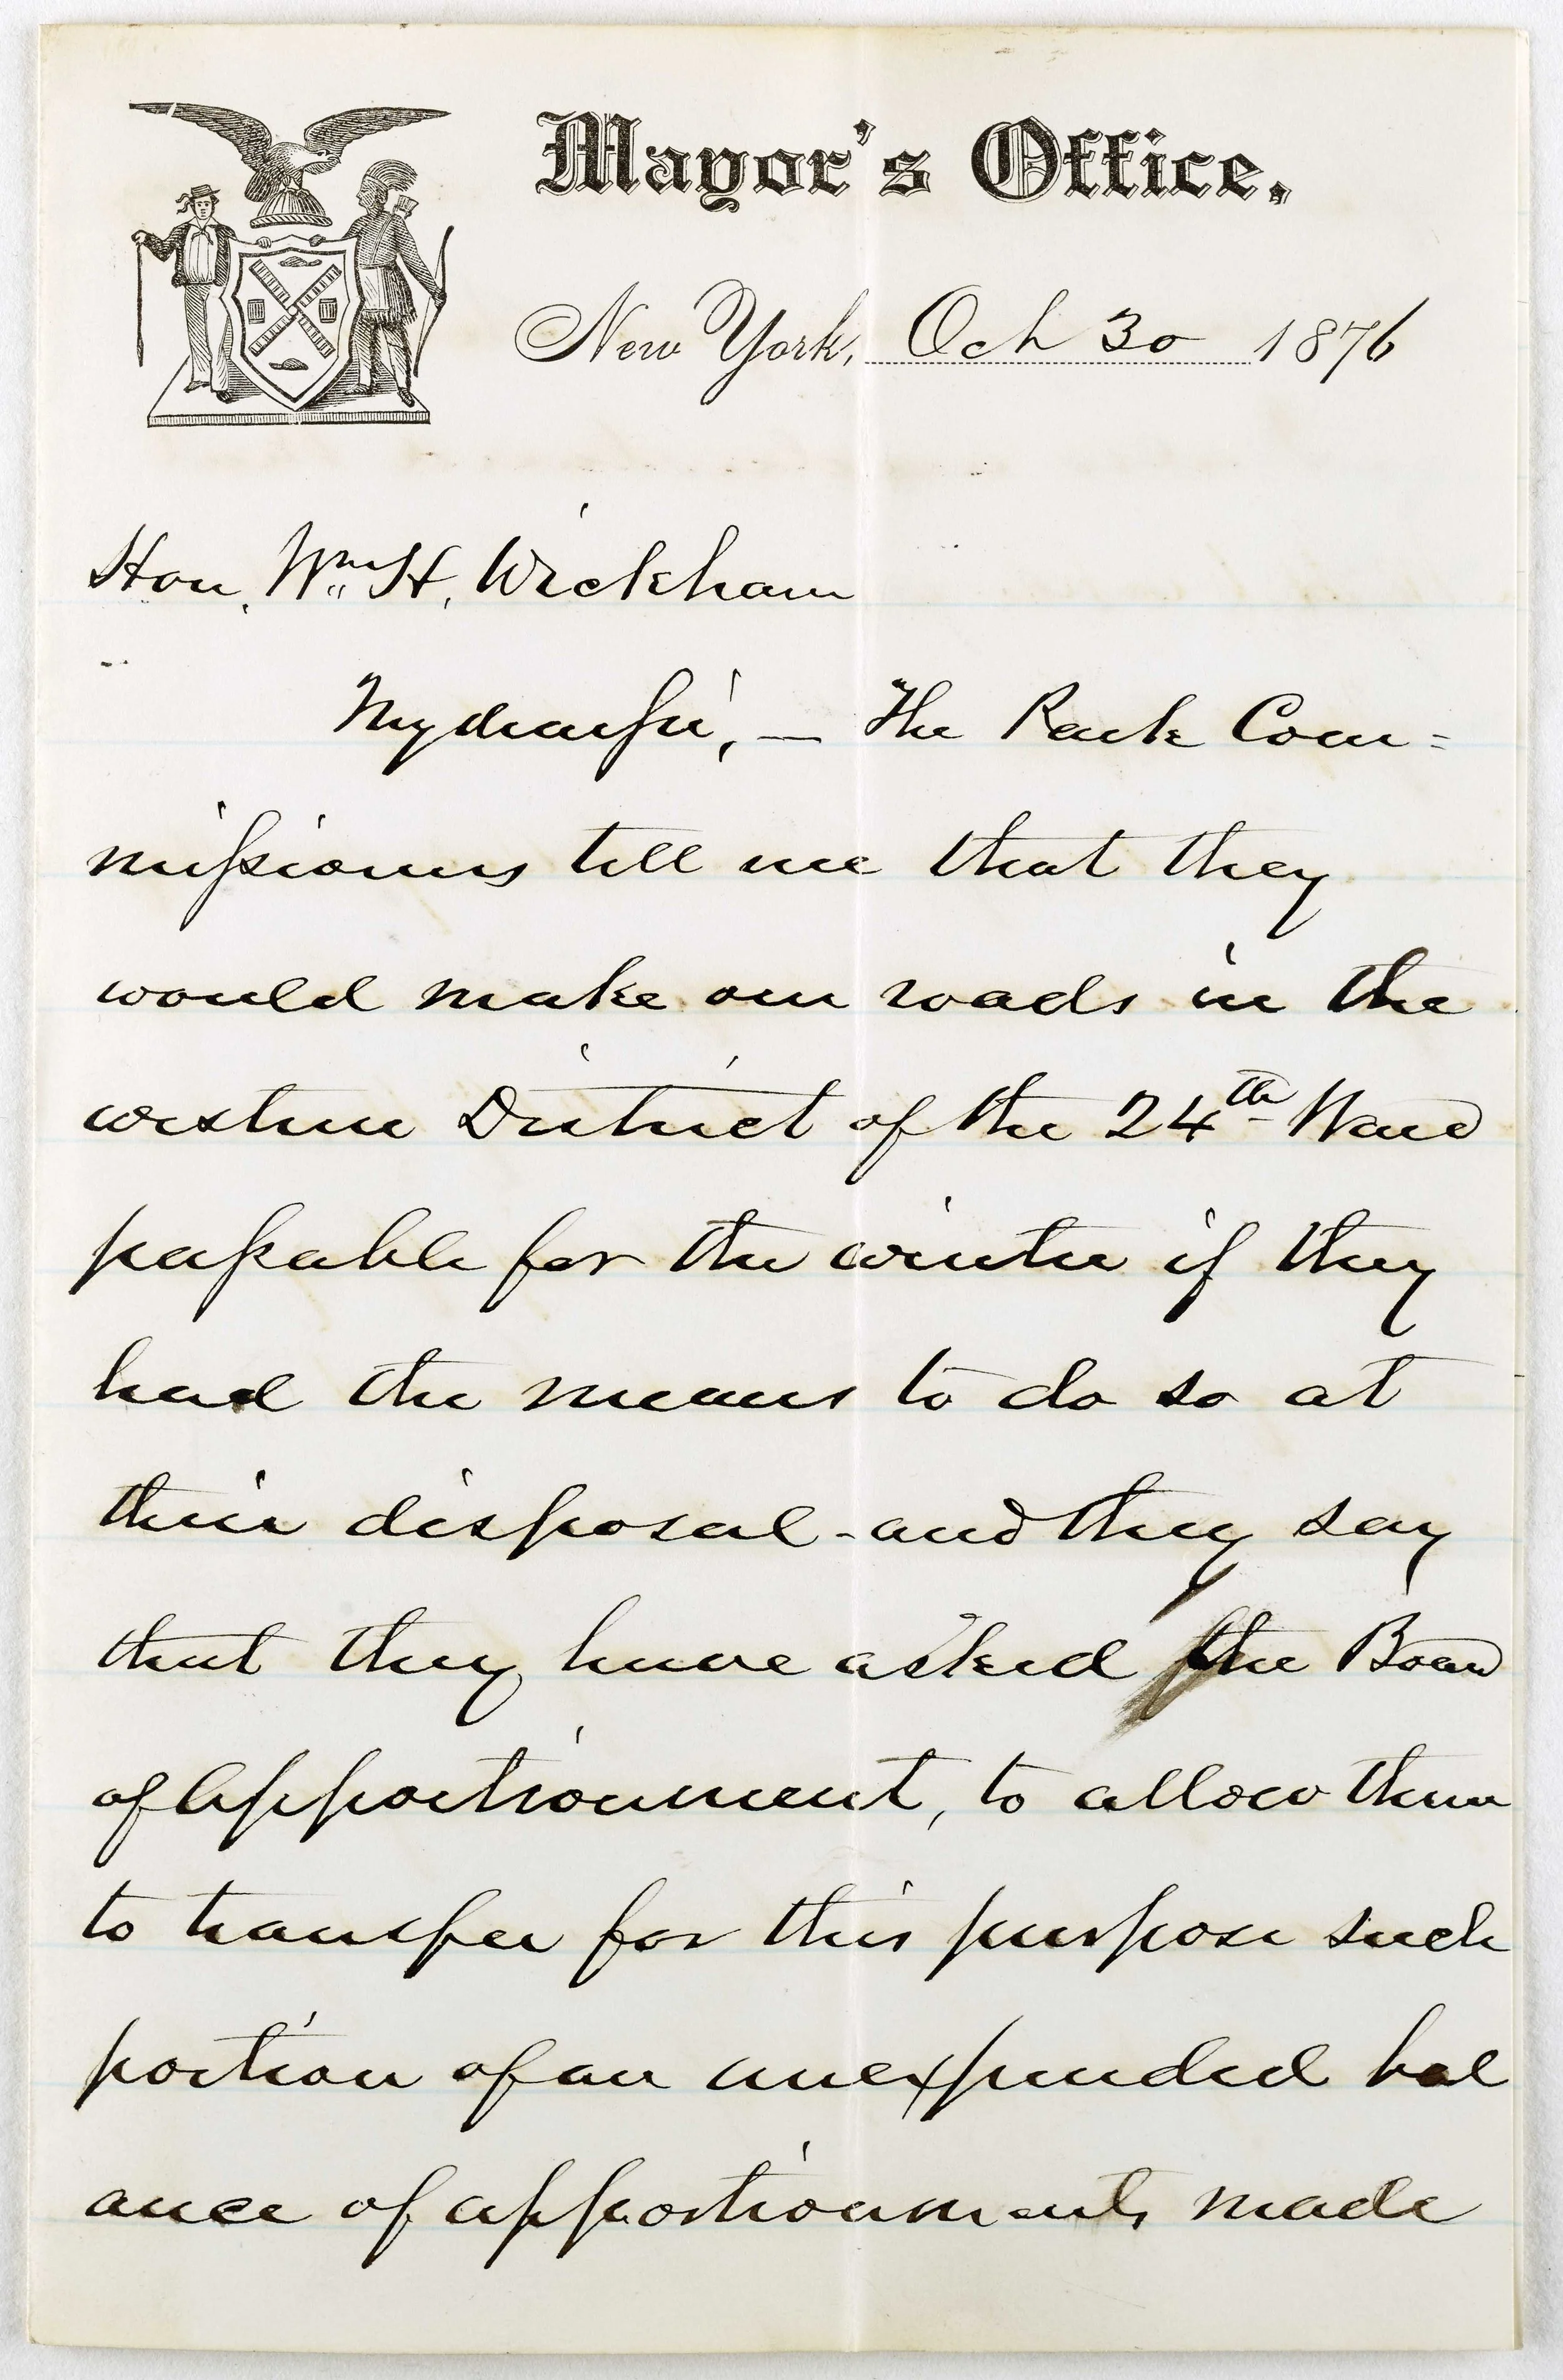 Mayor's Office.
New York, Oct 30 1876
Hon. Wm. H. Wickham
My dear Sir, — The Park Com=
missioners tell me that they
would make our roads in the
western District of the 24th Ward
passable for the winter if they
had the means to do so at
their disposal - and they say
that they have asked the Board
of Apportionment, to allow them
to transfer for this purpose such
portion of an unexpended bal
ance of apportionments made